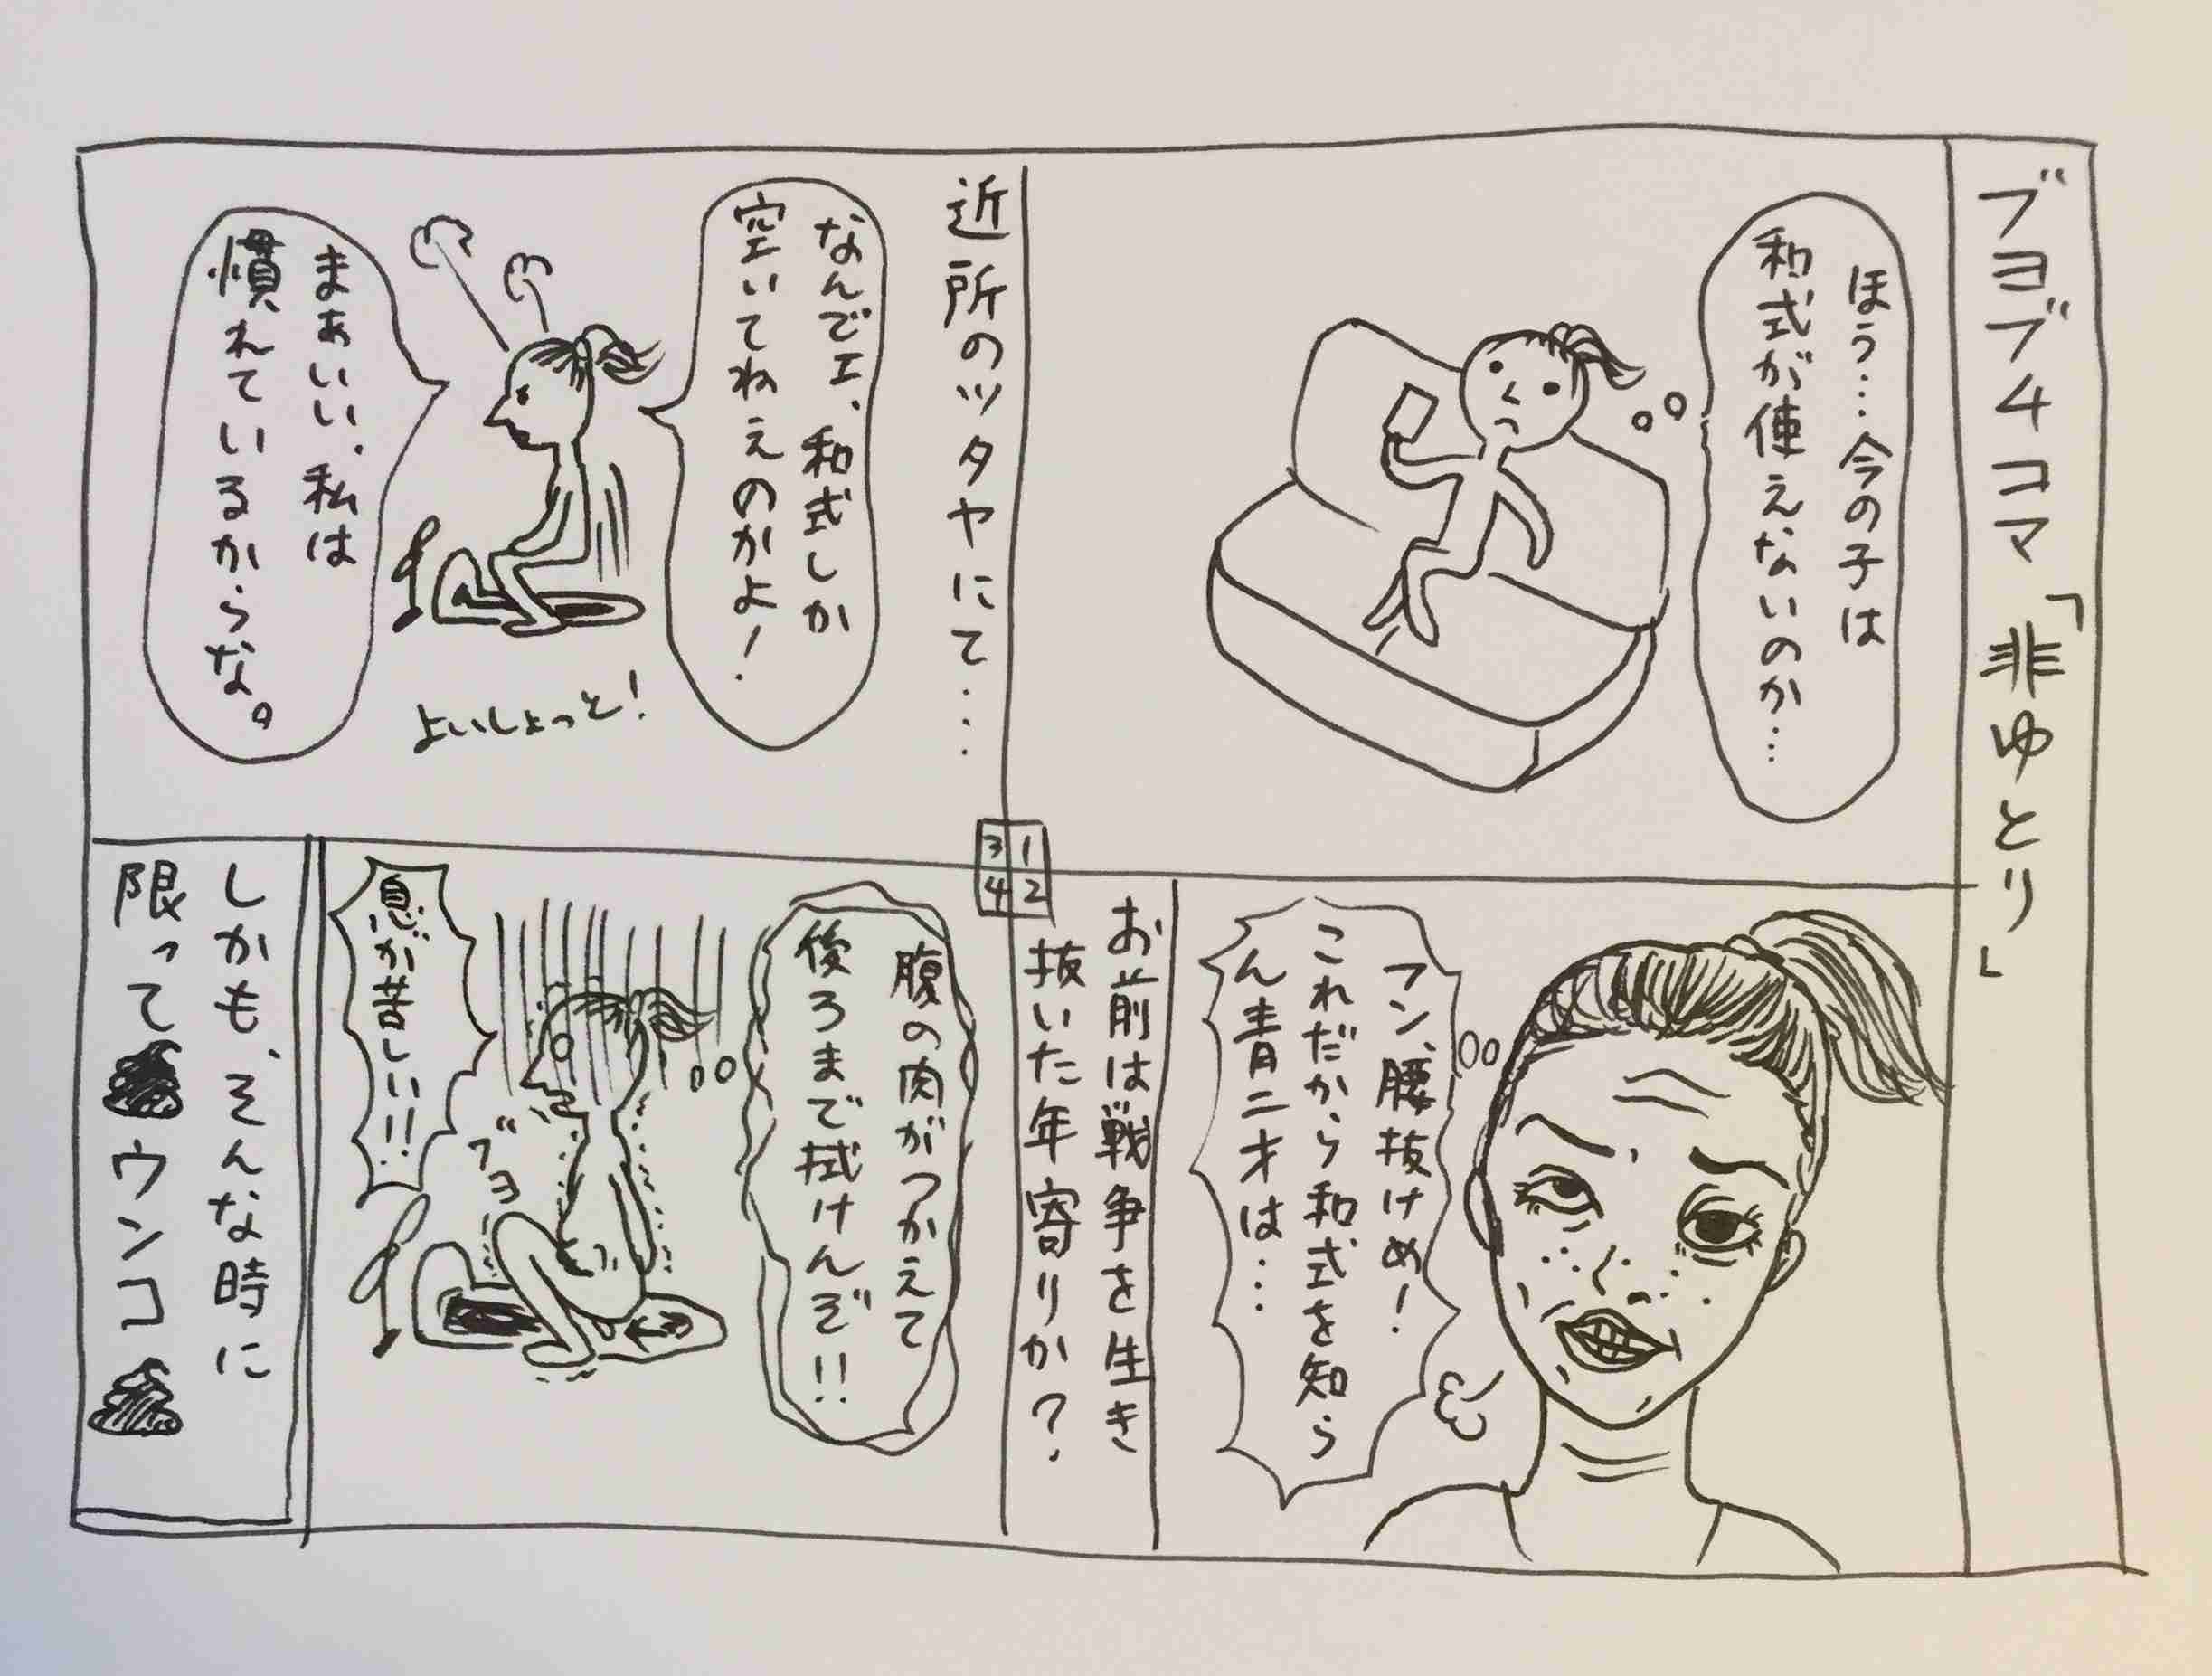 ブヨブヨ4コマ「非ゆとり」
ほう…今の子は
和式が使えないのか…
フン、腰抜けめ!
これだから和式を知ら
ん青二才は…
お前は戦争を生き
抜いた年寄りか?
近所のツタヤにて…
なんでエ、和式しか
空いてねえのかよ!
まぁいい、私は
慣れているからな。
よいしょっと!
腹の肉がつかえて
後ろまで拭けんぞ!!
ブヨ
息が苦しい!!
しかも、そんな時に
限ってウンコ
1
2
3
4